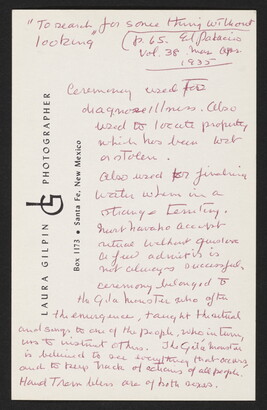 "To search for some thing without
looking"
(p. 65. El Palacio
Vol. 38 Mar Apr.
1935
LAURA GILPIN PHOTOGRAPHER
Box 1173 • Santa Fe, New Mexico
Ceremony used for
diagnose illness. Also
used to locate property
which has been lost
or stolen.
Also used for finding
water when in a
strange territory.
Most Navaho accept
ritual without question
A few admit is is
not always successful.
ceremony belonged to
the Gila Monster who after
the emergence, taught the ritual
and songs to one of the people, who in turn,
was to instruct others. The Gila monster
is believed to see everything that occurs
and to keep track of actions of all people.
Hand Tremblers are of both sexes.